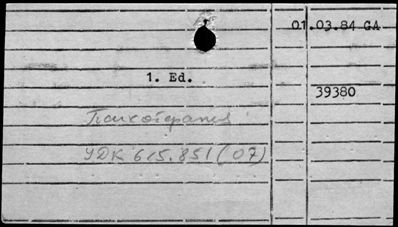 01.03.84 GA
1. Ed.
39380
Психотерапия
УДК 615.851 (07)